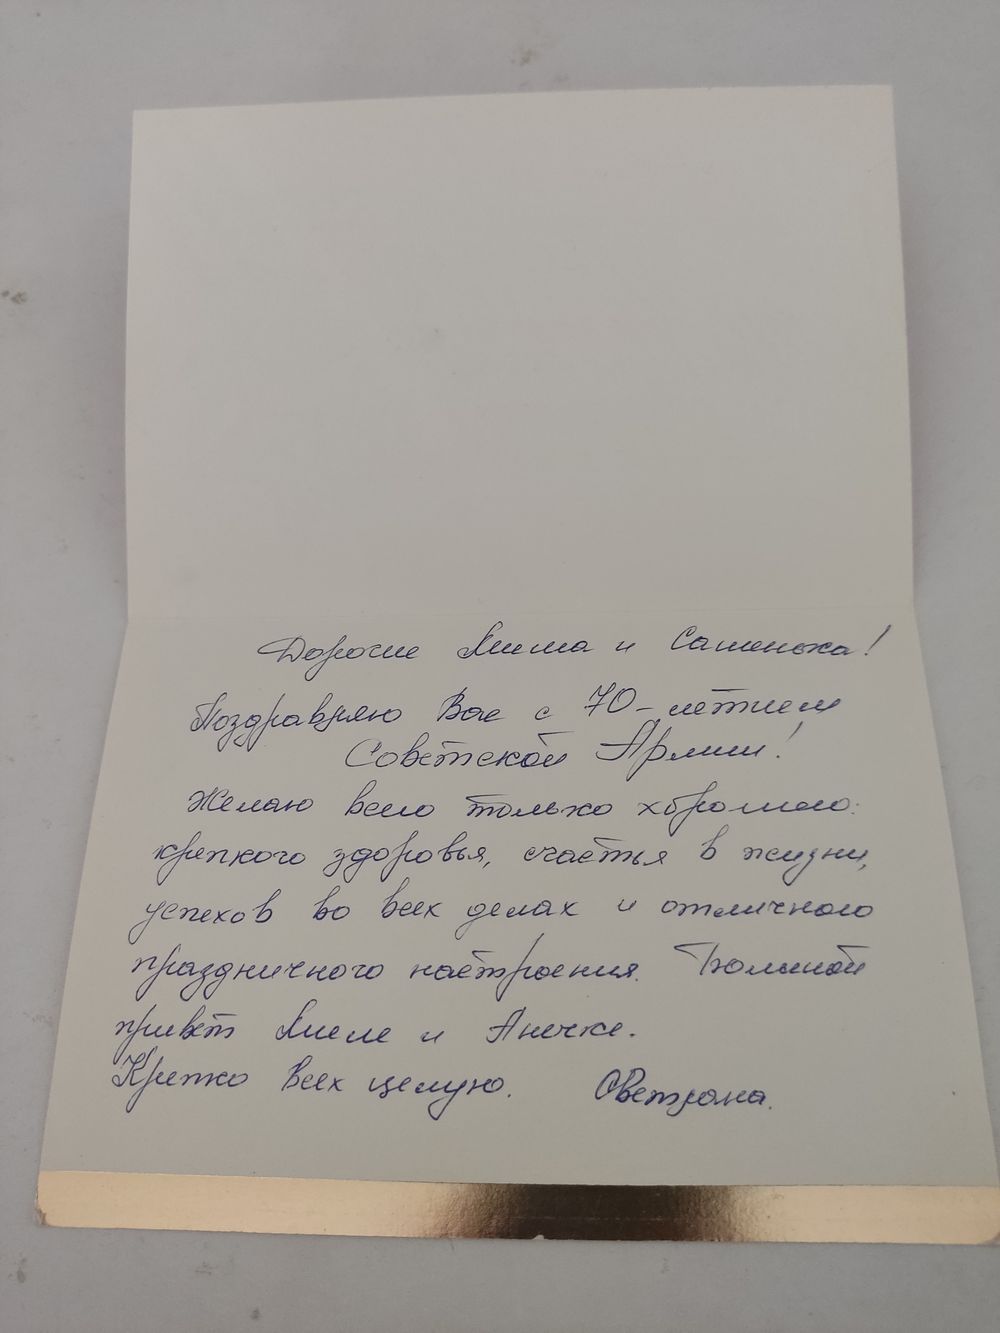 Дорогие Миша и Сашенька!
Поздравляю Вас с 70-летием
Советской Армии!
Желаю всего только хорошего:
крепкого здоровья, счастья в жизни,
успехов во всех делах и отличного
праздничного настроения. Большой
привет и Анечке.
Крепко всех целую. Светлана.